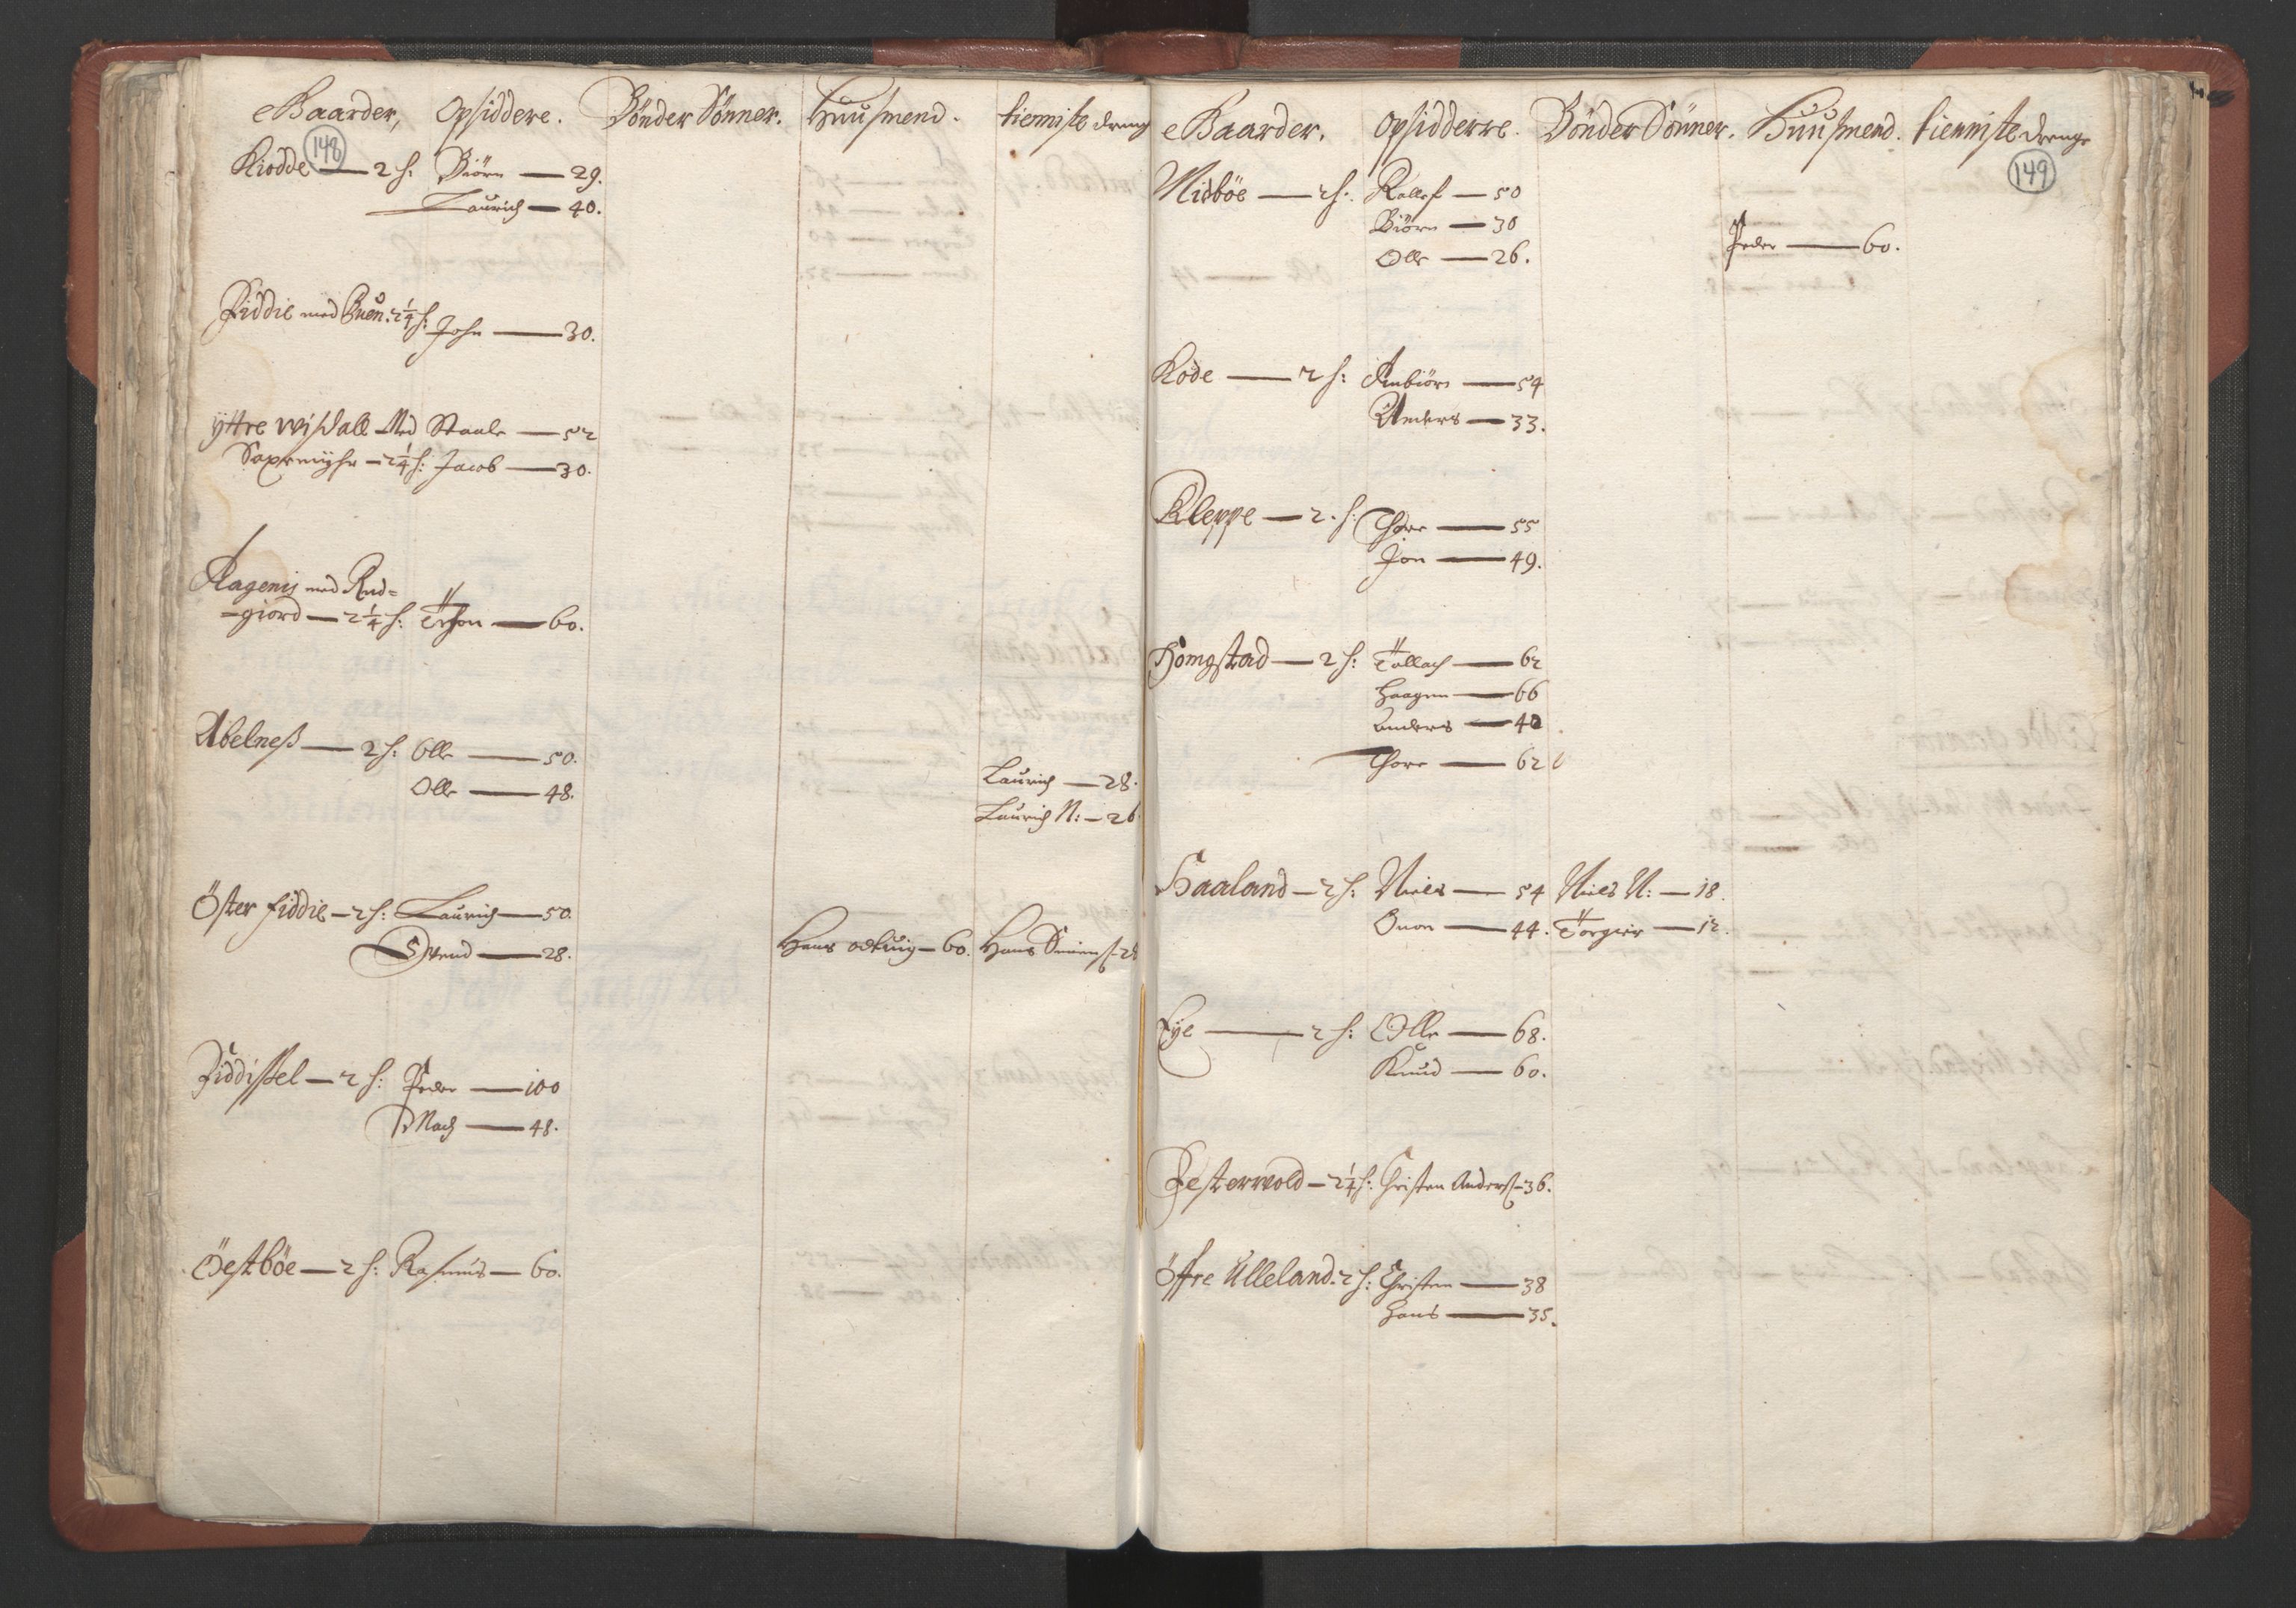 Gaarder, Opsiddere. Bönder Sönner. Huusmend. tienniste dreng
148
Kiødde — 2 h: Biörn — 29.
Laurich — 40.
Fiddie med Buen. 2¼ h: John — 30.
Yttre Wisdall Med Staale — 52
Saxemyhr — 2¼ h: Jacob — 30.
Aagenis med Rød=
=giord — 2¼ h: Thon — 60.
Abelneß — 2 h: Olle — 50.
Olle — 48.
Laurich — 28.
Laurich N: — 26
Öster Fiddie — 2 h: Laurich — 50.
Svend — 28. Hans — 60. Hans
Fiddissel — 2 h: Peder — 100
Mach — 48.
Öestböe — 2 h: Rasmus — 60.
Gaarder. Opsidderre. Bönder Sönner. Huusmend. tienniste drenge
149
Midböe — 2 h: Rollef — 50
Biörn — 30
Peder — 60.
Olle — 26.
Köde — 2 h: Anbiörn — 54
Anders — 33.
Kleppe — 2 h: Thore — 55
Jon — 49.
Homgstad — 2 h: Tollach — 62
Haagen — 66
Anders — 40
Thore — 62
Haaland — 2 h: Niels — 54 Niels N: — 18.
Onon — 44. Torgier — 12.
Eye — 2 h: Olle — 68.
Knud — 60.
Festervold — 2¼ h: Christen Anderß — 36.
Öffre Ulleland. 2 h: Christen — 38
Hans — 35.